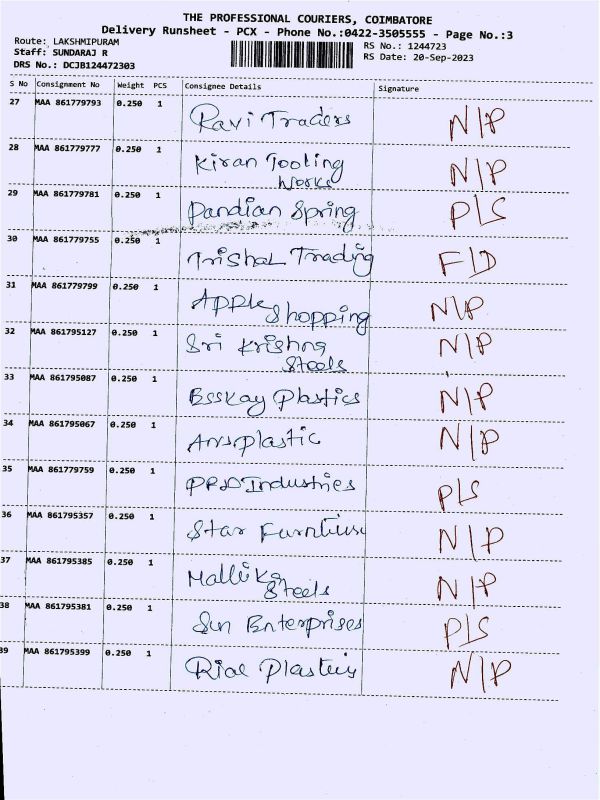 THE PROFESSIONAL COURIERS, COIMBATORE
Delivery Runsheet - PCX - Phone No.:0422-3505555 - Page No.:3
Route: LAKSHMIPURAM
RS No.: 1244723
Staff: SUNDARAJ R
RS Date: 20-Sep-2023
DRS No.: DCJB124472303
S No Consignment No Weight PCS Consignee Details Signature
27 MAA 861779793 0.250 1 Ravi Traders N/P
28 MAA 861779777 0.250 1 Kiran Tooling N/P
Works
29 MAA 861779781 0.250 1 Pandian Spring P/S
30 MAA 861779755 0.250 1 Trishal Trading F/D
31 MAA 861779799 0.250 1 Apple N/P
Shopping
32 MAA 861795127 0.250 1 Sri Krishna N/P
Steels
33 MAA 861795087 0.250 1 Esskay Plastics N/P
34 MAA 861795067 0.250 1 N/P
35 MAA 861779759 0.250 1 Industries P/S
36 MAA 861795357 0.250 1 Star N/P
37 MAA 861795385 0.250 1 Mallika N/P
Steels
38 MAA 861795381 0.250 1 Sun Enterprises P/S
39 MAA 861795399 0.250 1 N/P